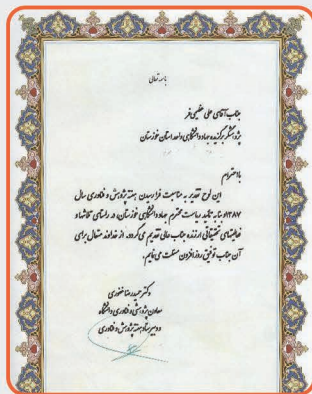 باسمه تعالی
جناب آقای علی عظیمی فر
پژوهشگر برگزیده جهاد دانشگاهی واحد استان خوزستان
با احترام
این لوح تقدیر به مناسبت فرا رسیدن هفته پژوهش و فناوری سال
۱۳۸۷ و بنا به تأیید ریاست محترم جهاد دانشگاهی خوزستان، در راستای تلاشها و
فعالیتهای تحقیقاتی ارزنده جناب عالی تقدیم می گردد. از خداوند متعال برای
آن جناب توفیق روزافزون مسئلت می نمایم.
دکتر حمیدرضا غفوری
معاون پژوهشی و فناوری دانشگاه
و دبیر ستاد هفته پژوهش و فناوری